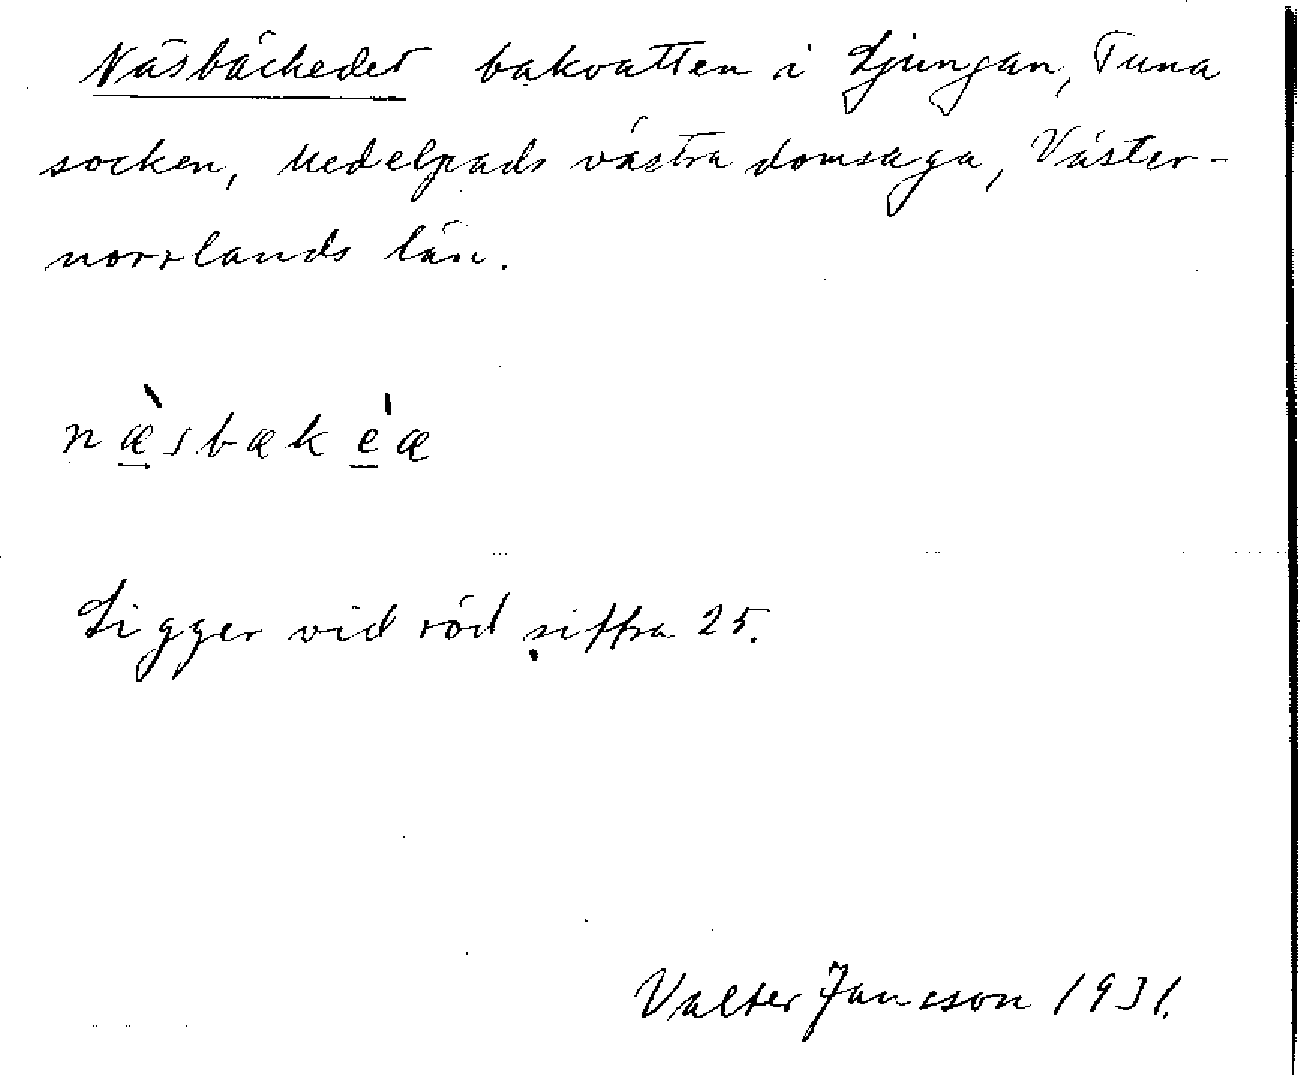 Näsbäckeder bakvatten i Ljungan, Tuna
socken, Medelpads västra domsaga, Väster-
norrlands län.
næ̀sbæke̍æ
Ligger vid röd siffra 25.
Valter Jansson 1931.